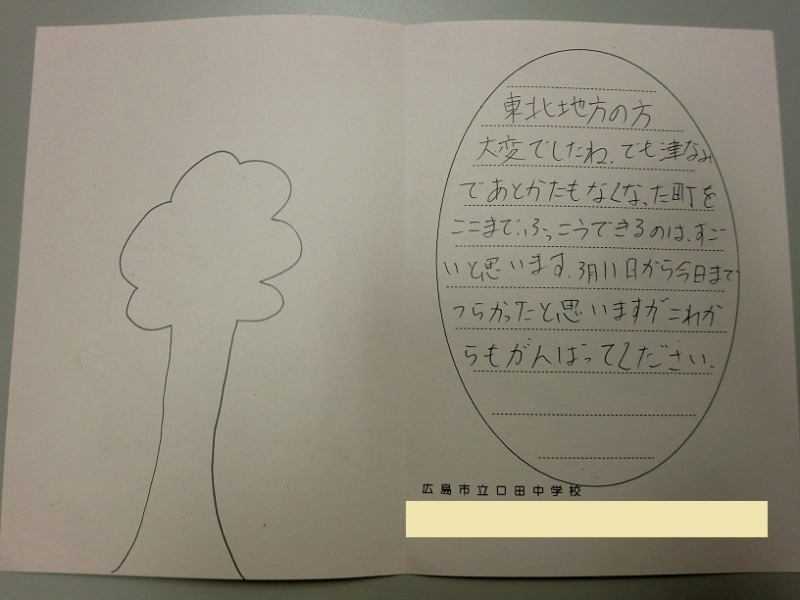 東北地方の方
大変でしたね。でも津なみ
であとかたもなくなった町を
ここまで、ふっこうできるのは、すご
いと思います。3月11日から今日まで
つらかったと思いますがこれか
らもがんばってください。
広島市立口田中学校